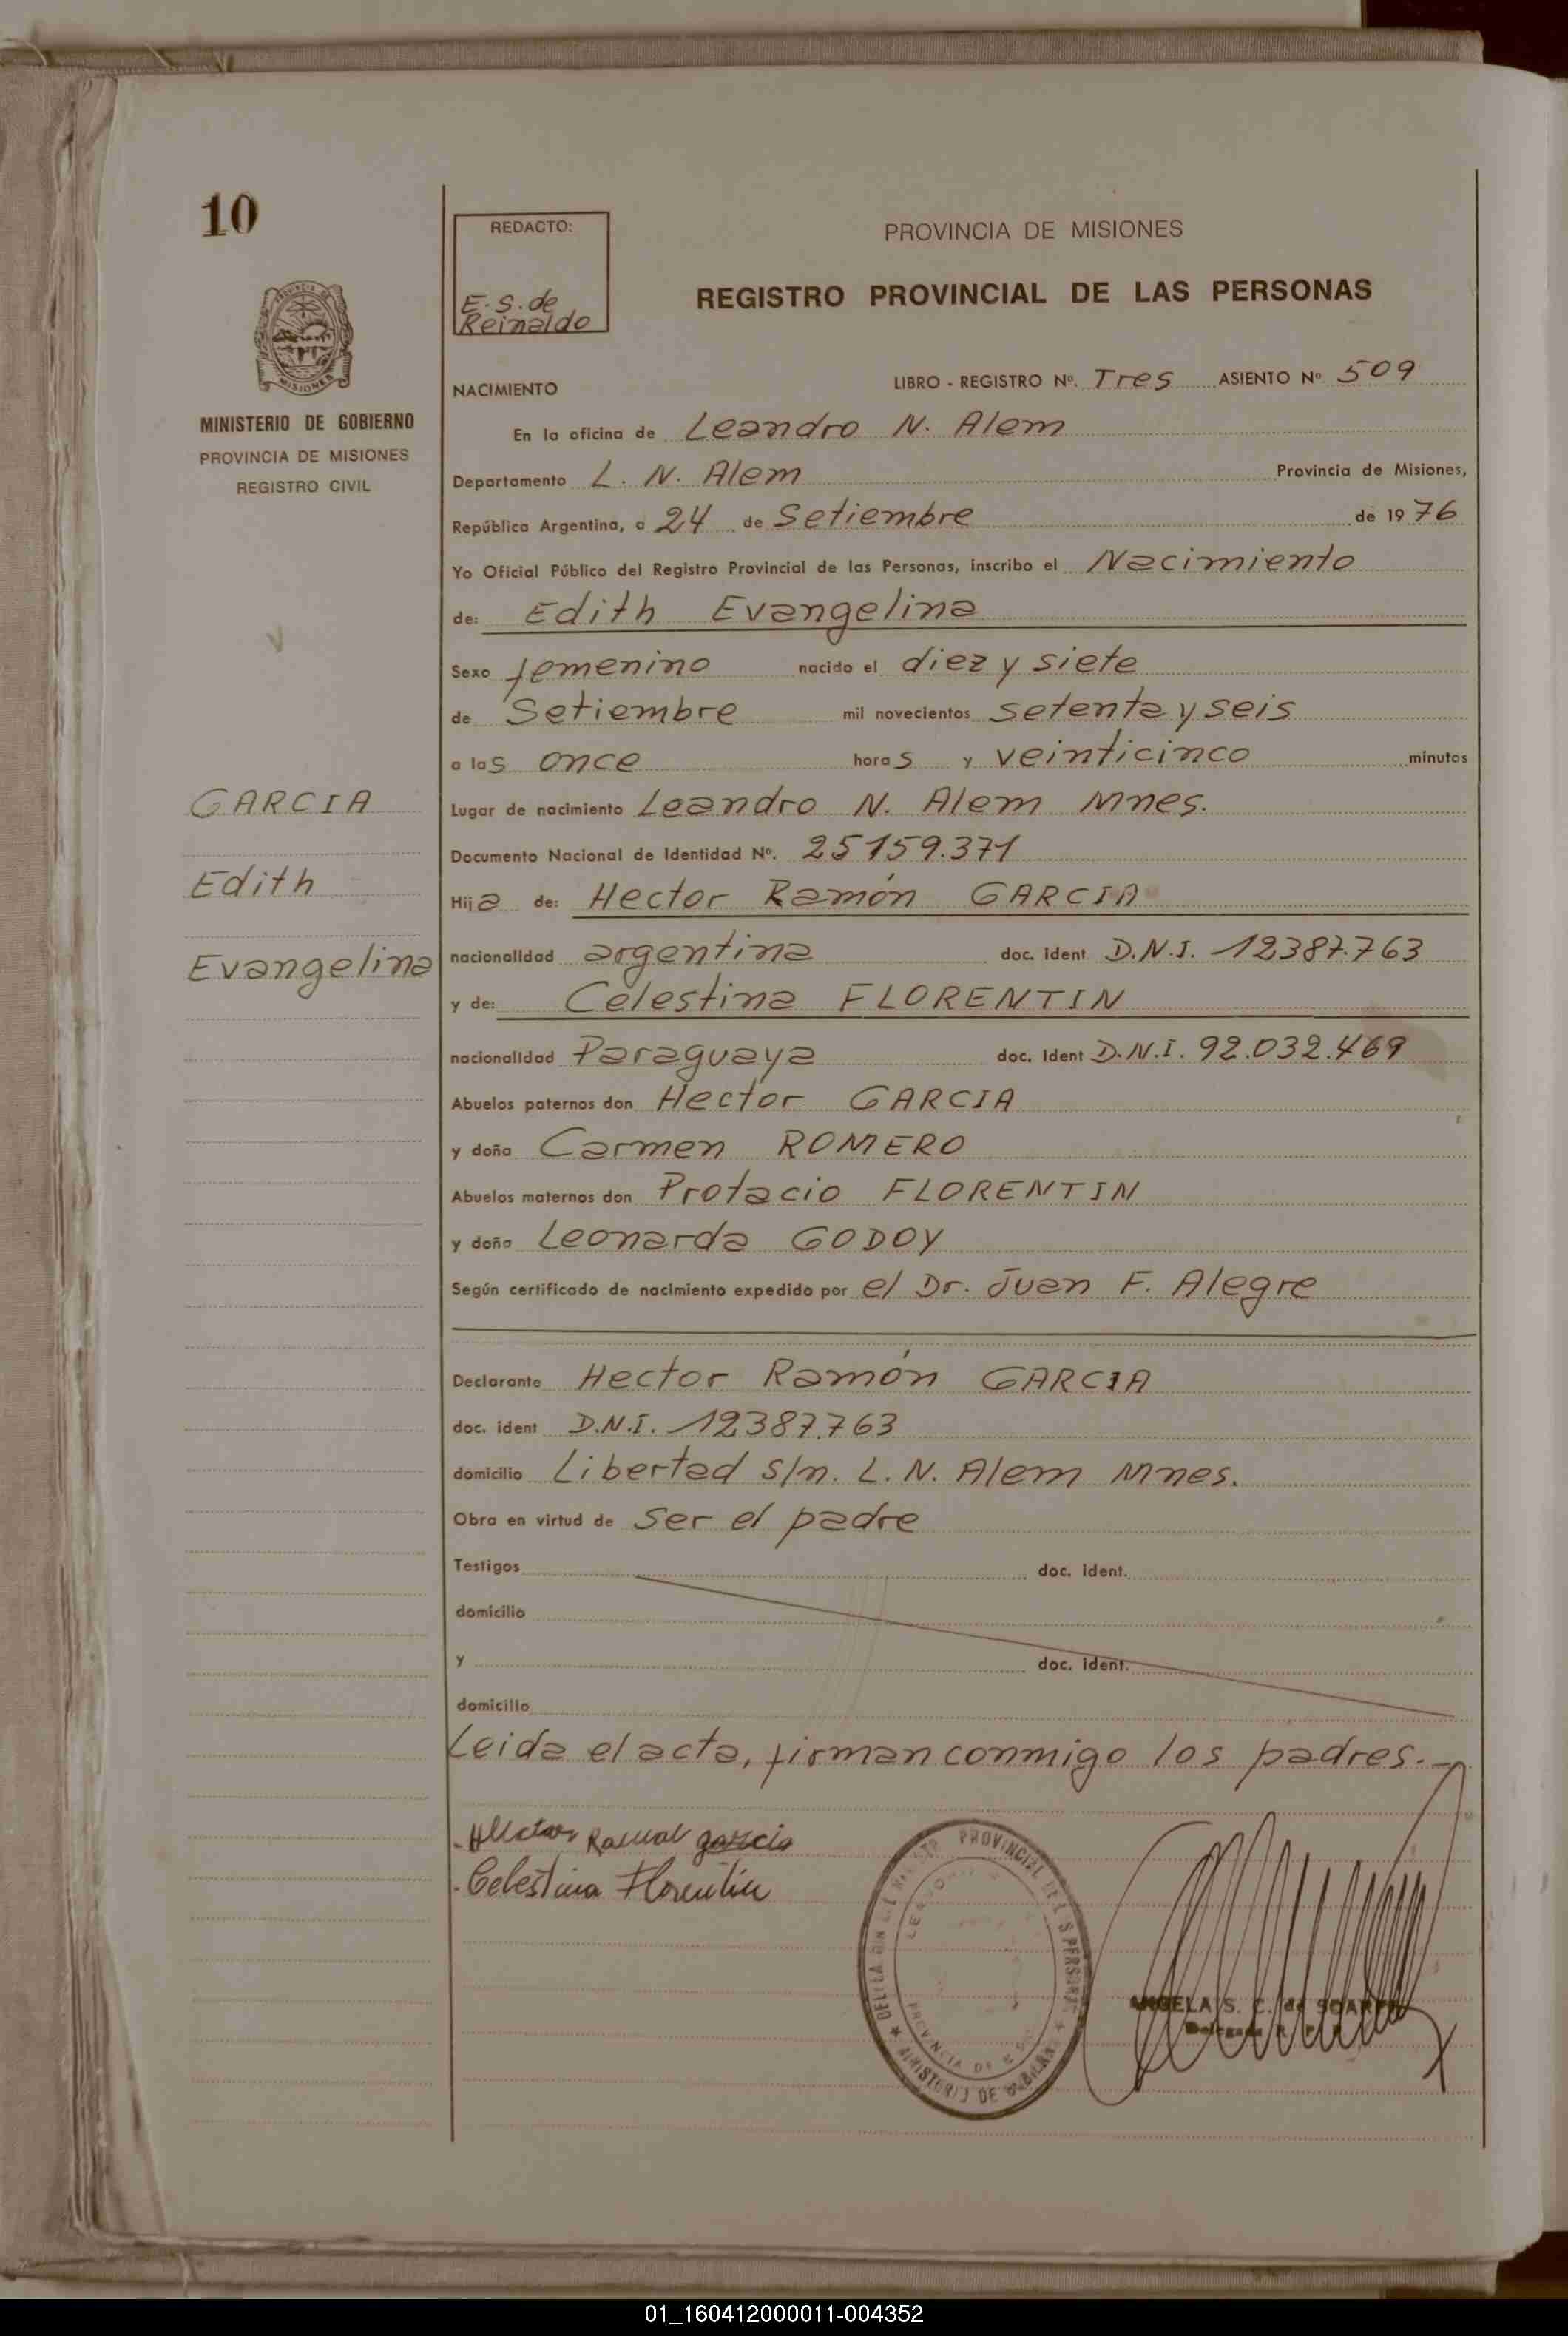 10
PROVINCIA DE MISIONES
MINISTERIO DE GOBIERNO
PROVINCIA DE MISIONES
REGISTRO CIVIL
GARCIA
Edith
Evangelina
REDACTO:
E. S. de
Reinaldo
PROVINCIA DE MISIONES
REGISTRO PROVINCIAL DE LAS PERSONAS
NACIMIENTO LIBRO - REGISTRO Nº. Tres ASIENTO Nº 509
En la oficina de Leandro N. Alem
Departamento L. N. Alem Provincia de Misiones,
República Argentina, a 24 de Setiembre de 19 76
Yo Oficial Público del Registro Provincial de las Personas, inscribo el Nacimiento
de: Edith Evangelina
Sexo femenino nacido el diez y siete
de Setiembre mil novecientos setenta y seis
a las once horas y veinticinco minutos
Lugar de nacimiento Leandro N. Alem Mnes.
Documento Nacional de Identidad Nº. 25159.371
Hija de: Hector Ramón GARCIA
nacionalidad argentina doc. ident D.N.I. 12387.763
y de: Celestina FLORENTIN
nacionalidad Paraguaya doc. ident D.N.I. 92.032.469
Abuelos paternos don Hector GARCIA
y doña Carmen ROMERO
Abuelos maternos don Protacio FLORENTIN
y doña Leonarda GODOY
Según certificado de nacimiento expedido por el Dr. Juan F. Alegre
Declarante Hector Ramón GARCIA
doc. ident D.N.I. 12387.763
domicilio Libertad s/n. L. N. Alem Mnes.
Obra en virtud de ser el padre
Testigos doc. ident.
domicilio
y doc. ident.
domicilio
Leida el acta, firman conmigo los padres.-
garcia
Celestina Florentin
PROVINCIAL DE PERSONAS
PROVINCIA DE
MINISTERIO DE GOBIERNO
ANGELA S. C. de
01_160412000011-004352